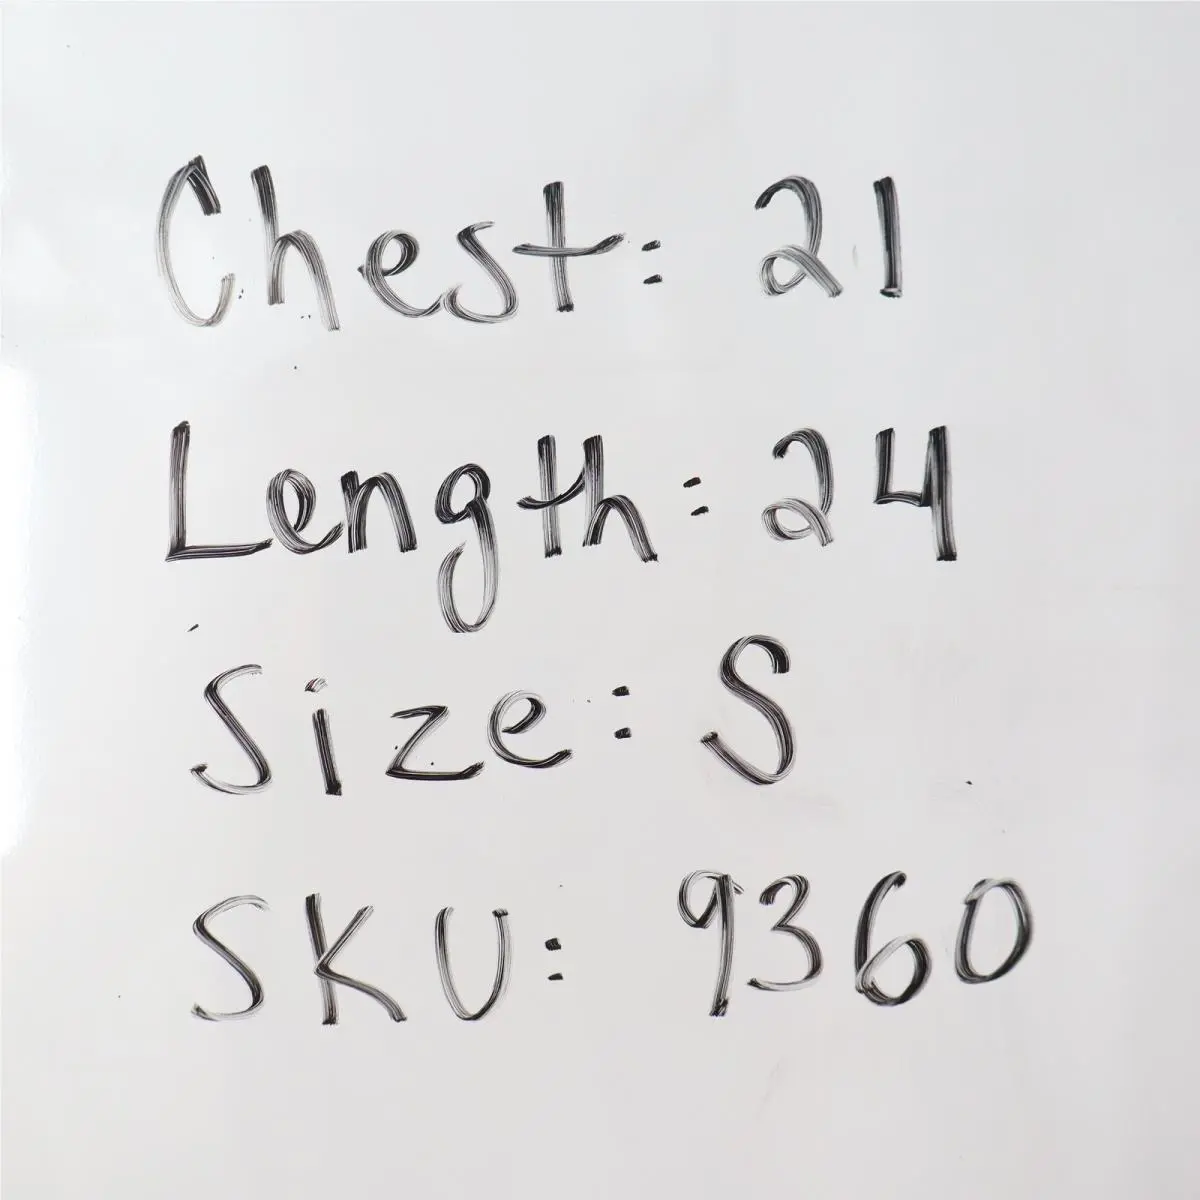 Chest: 21
Length: 24
Size: S
SKU: 9360